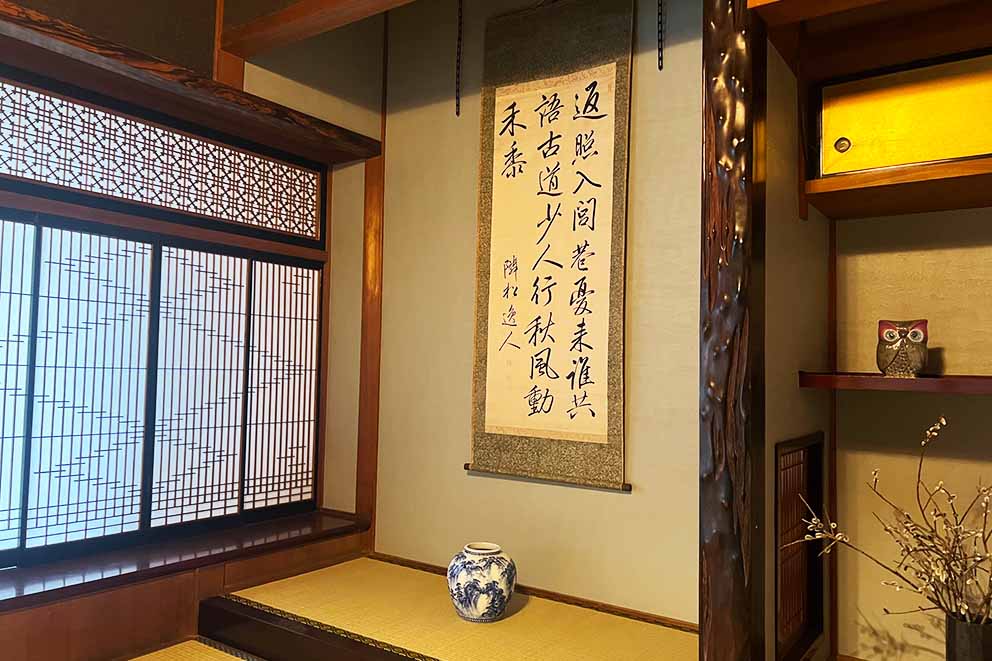 返照入閭巷憂来誰共
語古道少人行秋風動
禾黍
隣松逸人